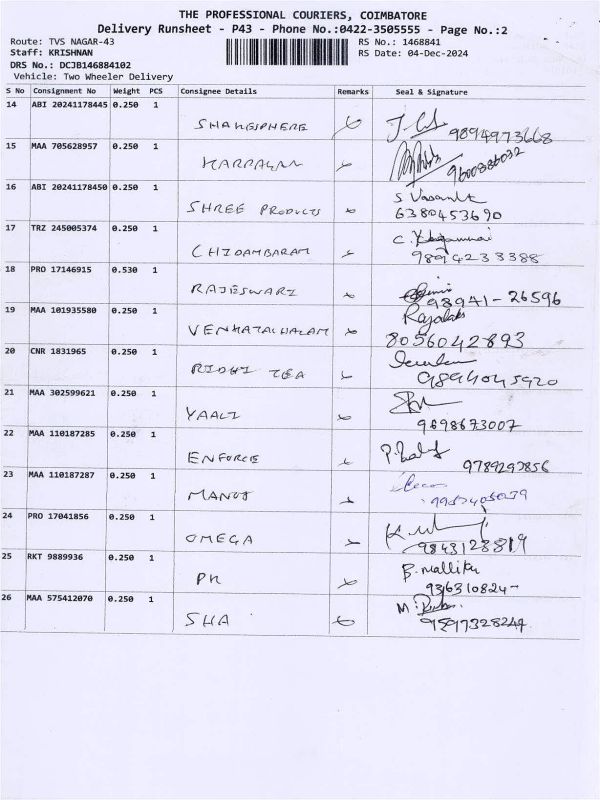 THE PROFESSIONAL COURIERS, COIMBATORE
Delivery Runsheet - P43 - Phone No.:0422-3505555 - Page No.:2
Route: TVS NAGAR-43 RS No.: 1468841
Staff: KRISHNAN RS Date: 04-Dec-2024
DRS No.: DCJB146884102
Vehicle: Two Wheeler Delivery
S No Consignment No Weight PCS Consignee Details Remarks Seal & Signature
14 ABI 20241178445 0.250 1
SHAKESPHERE 9894973668
15 MAA 705628957 0.250 1
KARPAGAM 9600886032
16 ABI 20241178450 0.250 1 S Vasanth
SHREE PRODUCTS 6380453690
17 TRZ 245005374 0.250 1
CHIDAMBARAM 9894238388
18 PRO 17146915 0.530 1
RAJESWARI 98941-26596
19 MAA 101935580 0.250 1 Rajalaks
VENKATACHALAM 8056042893
20 CNR 1831965 0.250 1
RIDHI TEA 9894045920
21 MAA 302599621 0.250 1
YAALI 9698673007
22 MAA 110187285 0.250 1
ENFORCE 9789293856
23 MAA 110187287 0.250 1
MANOJ
24 PRO 17041856 0.250 1
OMEGA 9843128819
25 RKT 9889936 0.250 1 B. mallika
PK 936310824-
26 MAA 575412070 0.250 1
SHA 9597328244